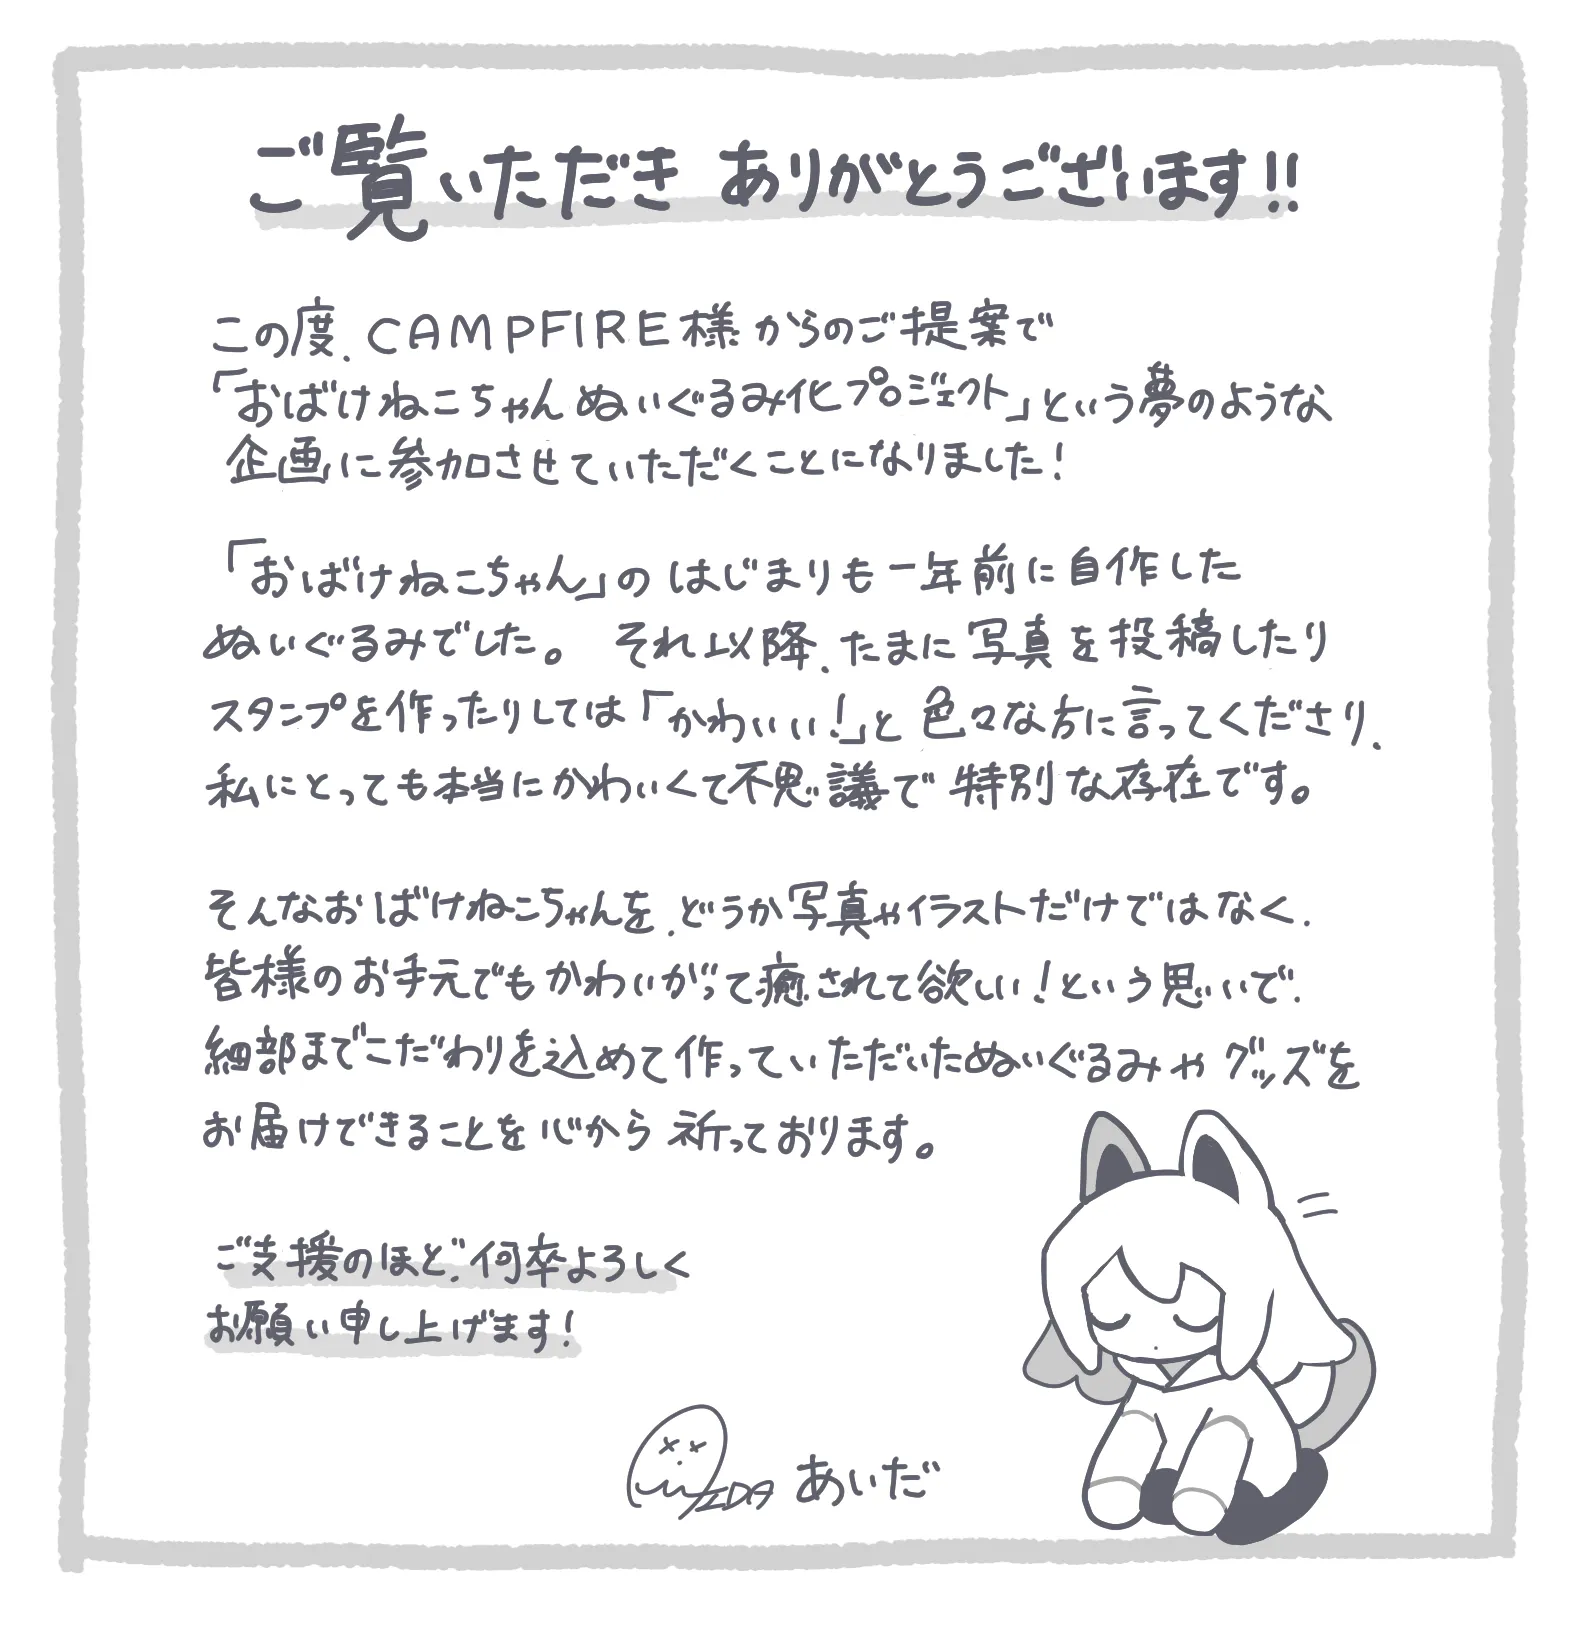 ご覧いただき ありがとうございます!!
この度、CAMPFIRE様からのご提案で
「おばけねこちゃんぬいぐるみ化プロジェクト」という夢のような
企画に参加させていただくことになりました!
「おばけねこちゃん」のはじまりも一年前に自作した
ぬいぐるみでした。それ以降、たまに写真を投稿したり
スタンプを作ったりしては「かわいい!」と色々な方に言ってくださり、
私にとっても本当にかわいくて不思議で特別な存在です。
そんなおばけねこちゃんを、どうか写真やイラストだけではなく、
皆様のお手元でもかわいがって癒されて欲しい!という思いで、
細部までこだわりを込めて作っていただいたぬいぐるみやグッズを
お届けできることを心から祈っております。
ご支援のほど、何卒よろしく
お願い申し上げます!
AIDA あいだ